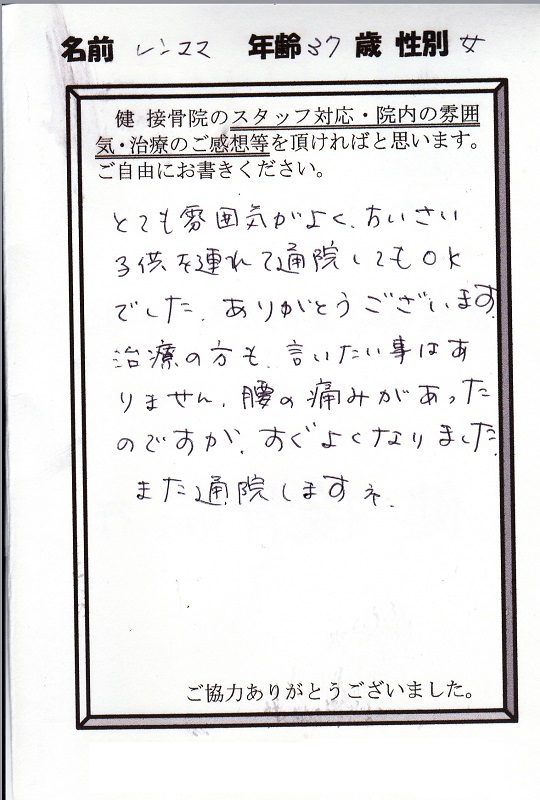 名前 レンママ 年齢 37 歳 性別 女
健 接骨院のスタッフ対応・院内の雰囲
気・治療のご感想等を頂ければと思います。
ご自由にお書きください。
とても雰囲気がよく、ちいさい
子供を連れて通院してもOK
でした。ありがとうございます。
治療の方も、言いたい事はあ
りません。腰の痛みがあった
のですが、すぐよくなりました。
また通院しますネ。
ご協力ありがとうございました。